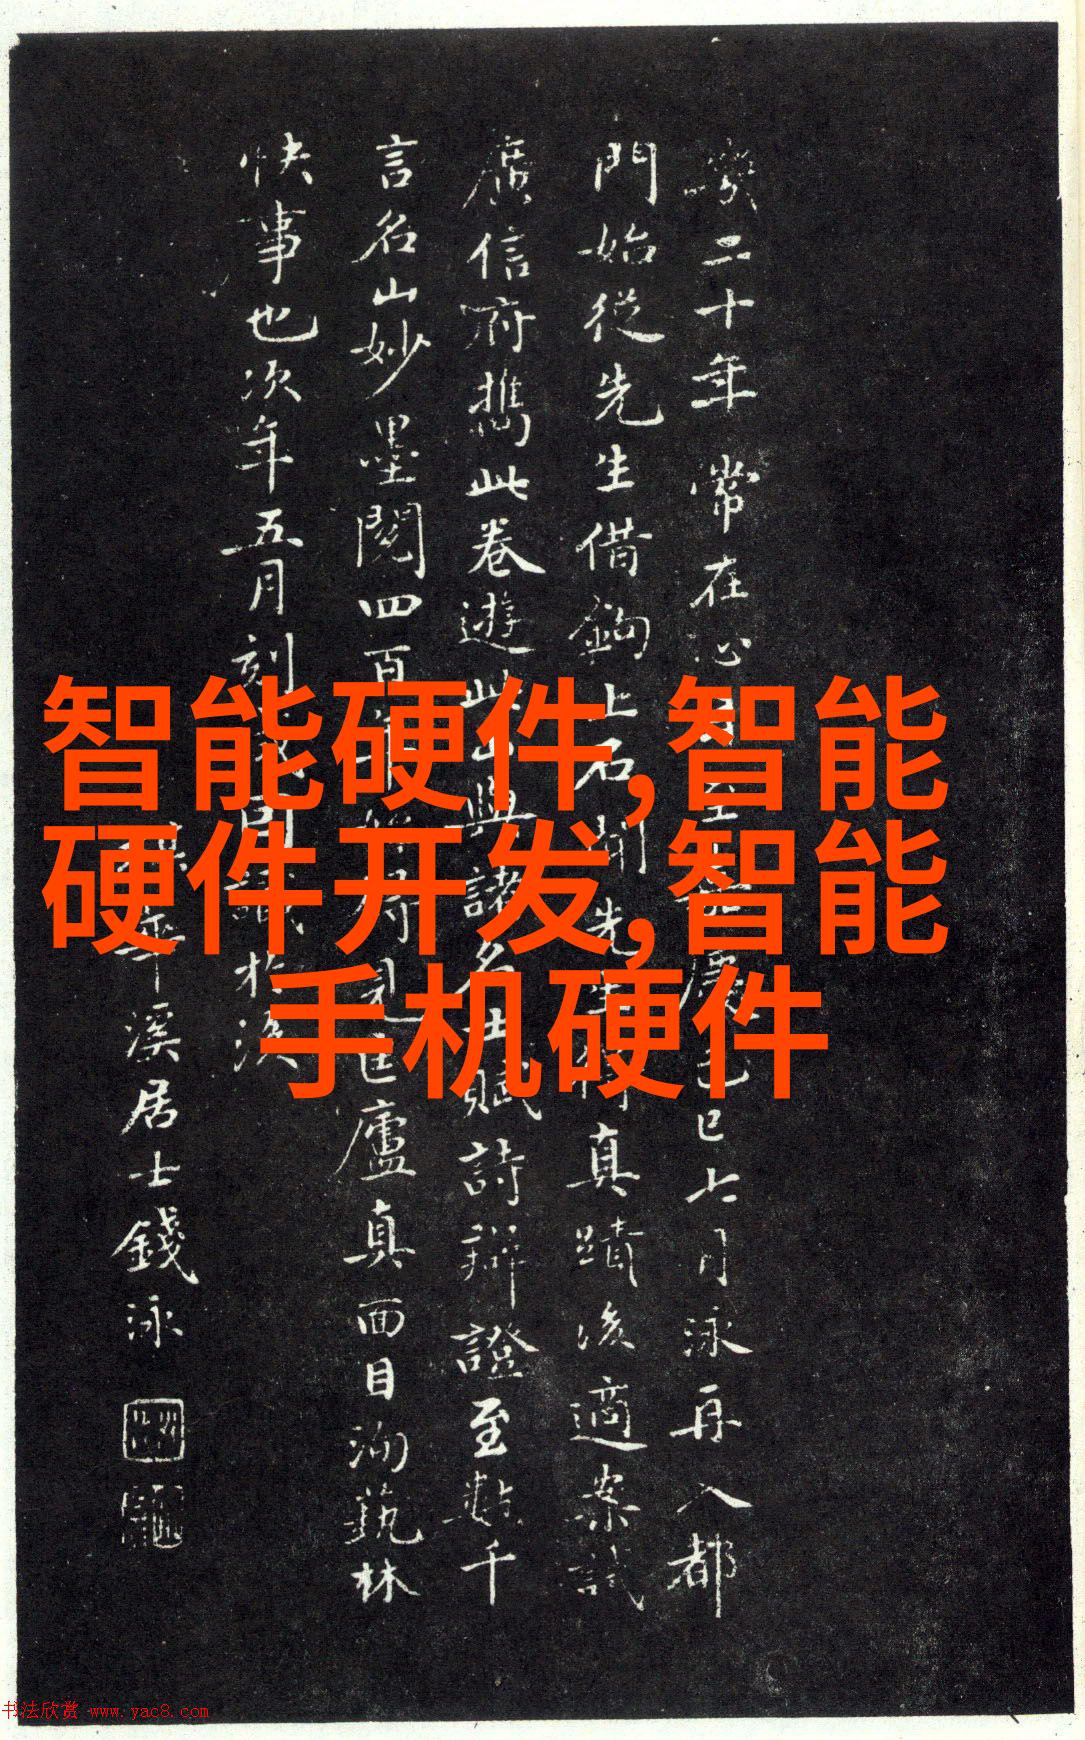 智能硬件,智能
硬件开发,智能
手机硬件
二十年常在心
至
巳七月泳再入都
門始從先生借鉤上石
先
真蹟後適案試
廣信府携此卷遊此山與諸名士賦詩辯證至數千
言名山妙墨閱四百
匡廬真面目洵藝林
快事也次年五月刻
於
溪居士錢泳
书法欣赏 www.yac8.com